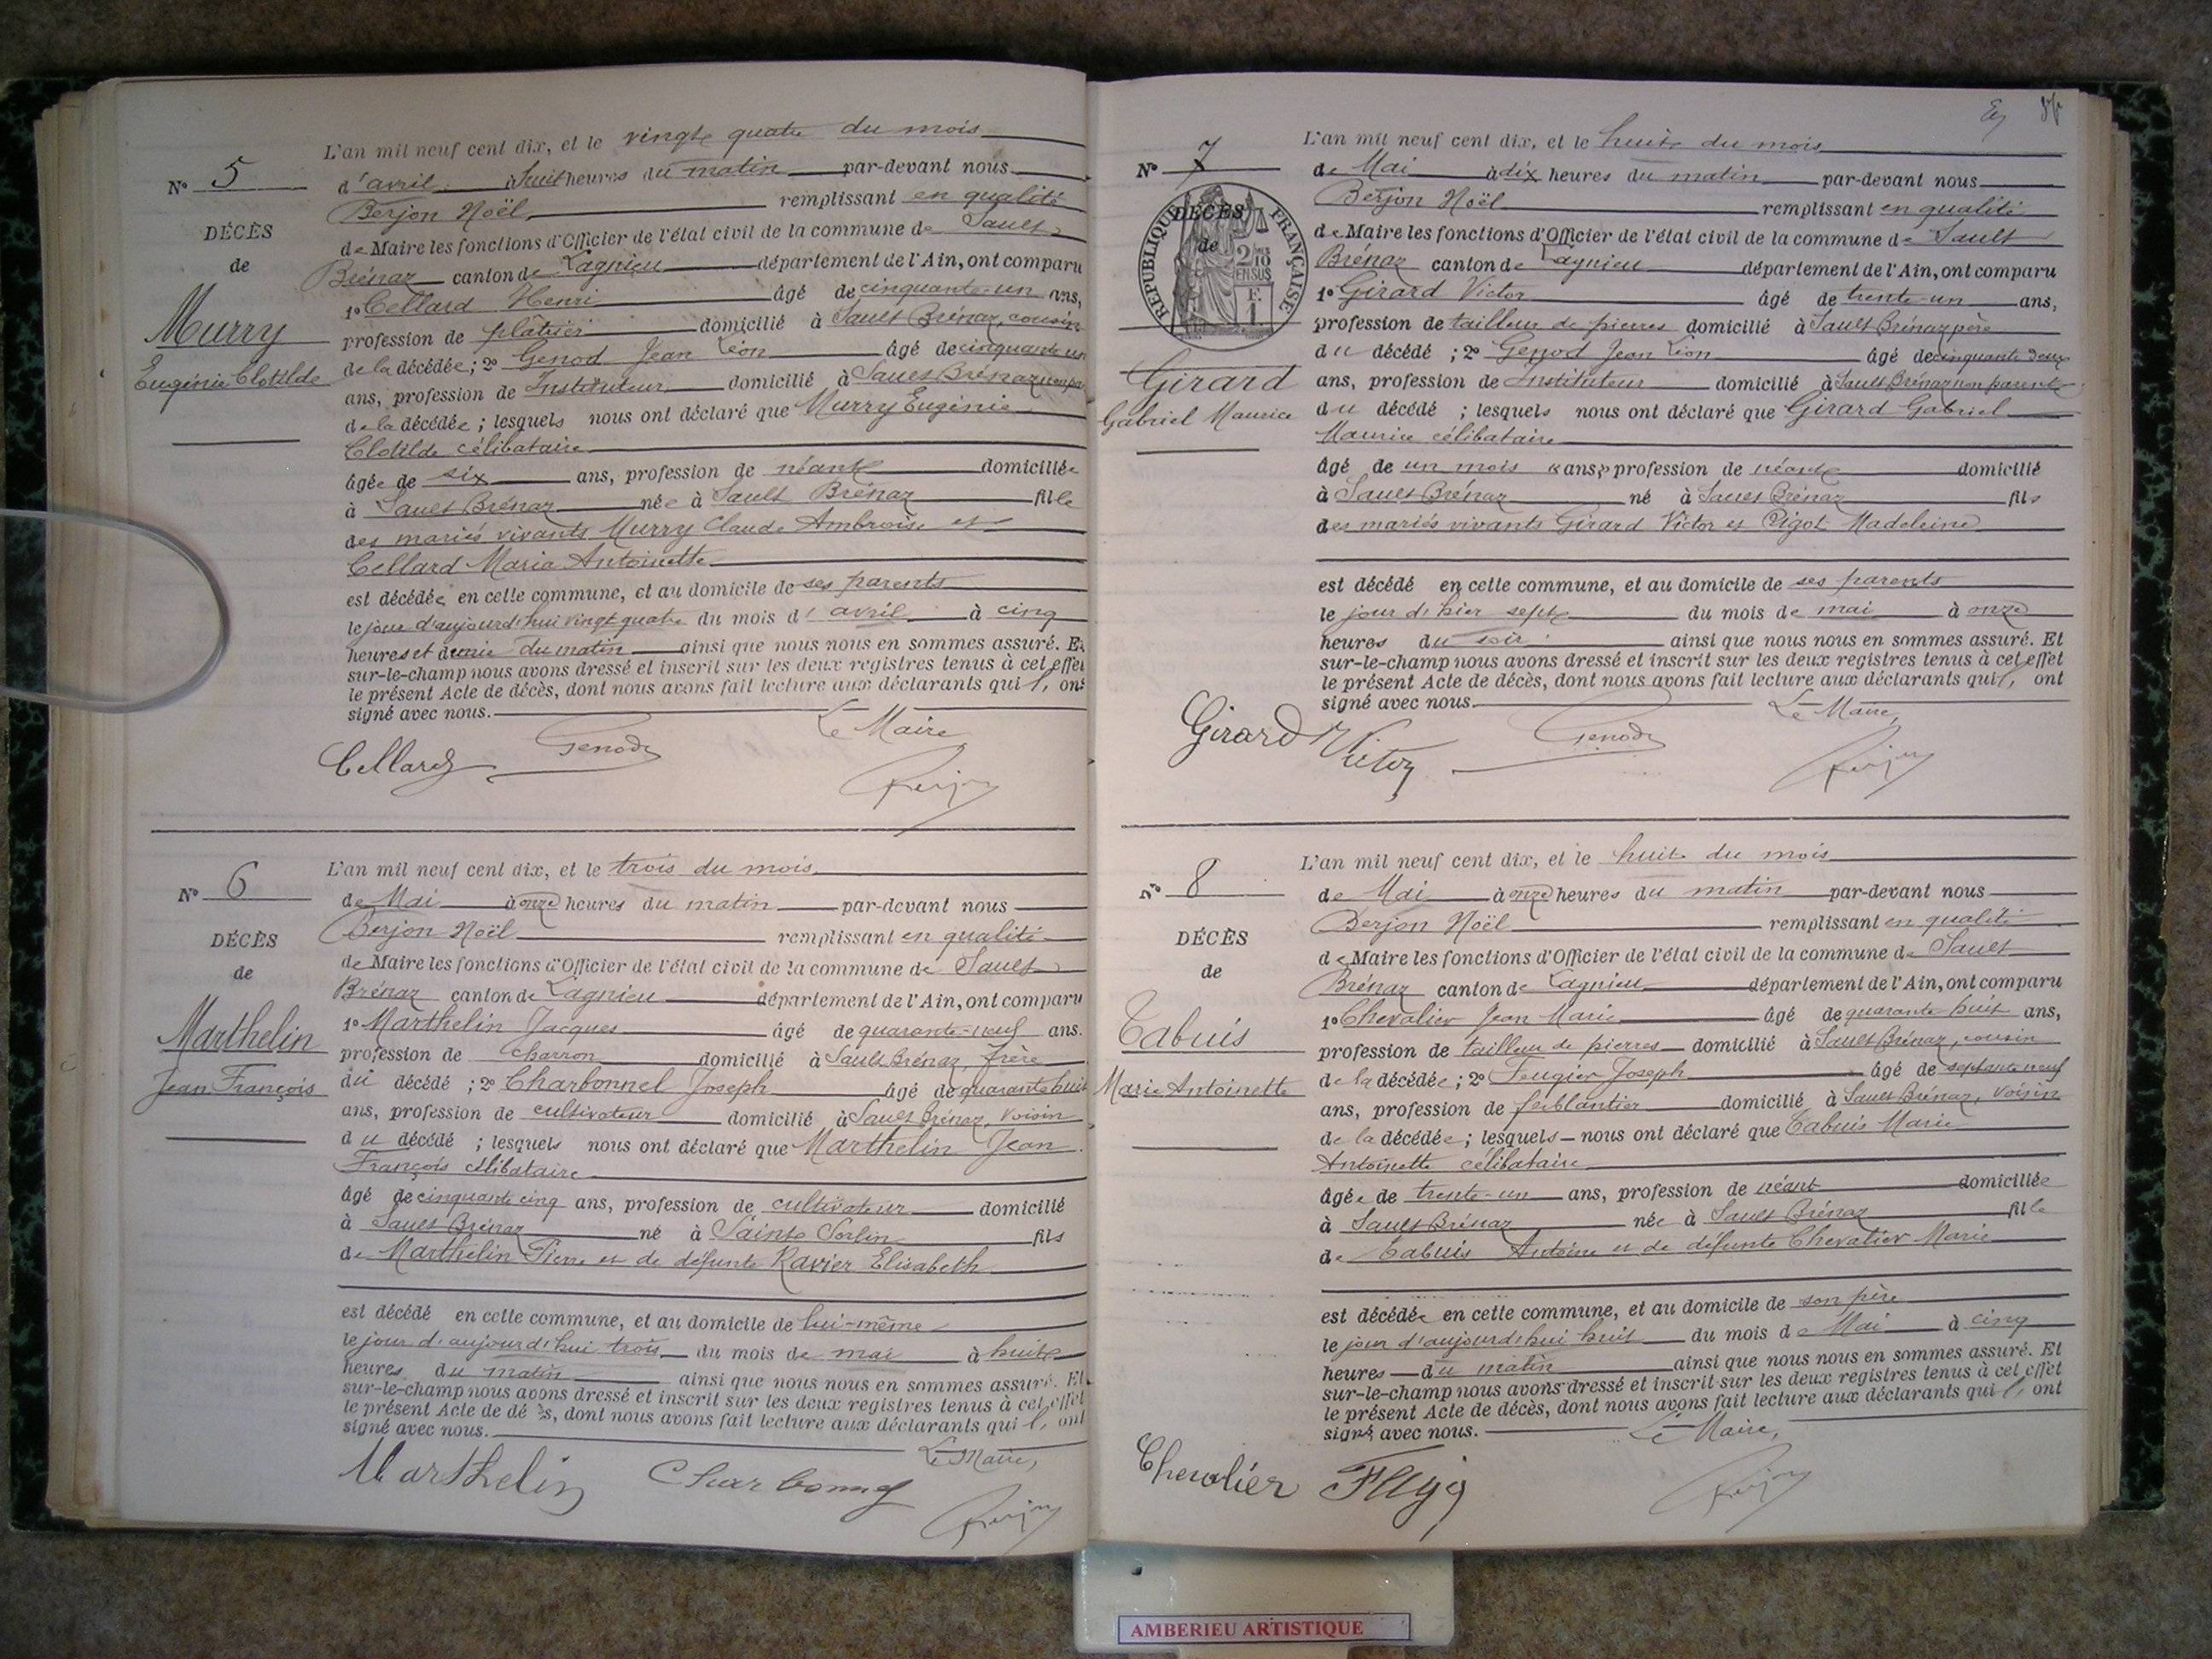 N° 5
DÉCÈS
de
Murry
Eugénie Clotilde
L'an mil neuf cent dix, et le vingt quatre du mois
d'avril à huit heures du matin par-devant nous
Berjon Noël remplissant en qualité
de Maire les fonctions d'Officier de l'état civil de la commune de Sault
Brénaz canton de Lagnieu département de l'Ain, ont comparu
1° Cellard Henri âgé de cinquante-un ans,
profession de plâtrier domicilié à Sault Brénaz, cousin
de la décédée; 2° Genod Jean Léon âgé de cinquante un
ans, profession de Instituteur domicilié à Sault Brénaz
de la décédée; lesquels nous ont déclaré que Murry Eugénie
Clotilde célibataire
âgée de six ans, profession de néant domiciliée
à Sault Brénaz née à Sault Brénaz fille
des mariés vivants Murry Claude Ambroise et
Cellard Maria Antoinette
est décédée en cette commune, et au domicile de ses parents
le jour d'aujourd'hui vingt quatre du mois d'avril à cinq
heures et demie du matin ainsi que nous nous en sommes assuré. Et
sur-le-champ nous avons dressé et inscrit sur les deux registres tenus à cet effet
le présent Acte de décès, dont nous avons fait lecture aux déclarants qui l' ont
signé avec nous.
Le Maire
Cellard Genod Berjon
N° 6
DÉCÈS
de
Marthelin
Jean François
L'an mil neuf cent dix, et le trois du mois
de Mai à onze heures du matin par-devant nous
Berjon Noël remplissant en qualité
de Maire les fonctions d'Officier de l'état civil de la commune de Sault
Brénaz canton de Lagnieu département de l'Ain, ont comparu
1° Marthelin Jacques âgé de quarante-neuf ans.
profession de charron domicilié à Sault Brénaz, frère
du décédé; 2° Charbonnel Joseph âgé de quarante huit
ans, profession de cultivateur domicilié à Sault Brénaz, voisin
du décédé; lesquels nous ont déclaré que Marthelin Jean
François célibataire
âgé de cinquante cinq ans, profession de cultivateur domicilié
à Sault Brénaz né à Sainte Sorlin fils
de Marthelin Pierre et de défunte Ravier Elisabeth
est décédé en cette commune, et au domicile de lui-même
le jour d'aujourd'hui trois du mois de mai à huit
heures du matin ainsi que nous nous en sommes assuré. Et
sur-le-champ nous avons dressé et inscrit sur les deux registres tenus à cet effet
le présent Acte de décès, dont nous avons fait lecture aux déclarants qui l' ont
signé avec nous.
Le Maire,
Marthelin Charbonnel Berjon
N° 7
REPUBLIQUE FRANÇAISE
2/10 EN SUS
F. 1
DÉCÈS
de
Girard
Gabriel Maurice
L'an mil neuf cent dix, et le huit du mois
de Mai à dix heures du matin par-devant nous
Berjon Noël remplissant en qualité
de Maire les fonctions d'Officier de l'état civil de la commune de Sault
Brénaz canton de Lagnieu département de l'Ain, ont comparu
1° Girard Victor âgé de trente-un ans,
profession de tailleur de pierres domicilié à Sault Brénaz père
du décédé; 2° Genod Jean Léon âgé de cinquante deux
ans, profession de Instituteur domicilié à Sault Brénaz non parent
du décédé; lesquels nous ont déclaré que Girard Gabriel
Maurice célibataire
âgé de un mois «ans» profession de néant domicilié
à Sault Brénaz né à Sault Brénaz fils
des mariés vivants Girard Victor et Pigot Madeleine
est décédé en cette commune, et au domicile de ses parents
le jour d'hier sept du mois de mai à onze
heures du soir ainsi que nous nous en sommes assuré. Et
sur-le-champ nous avons dressé et inscrit sur les deux registres tenus à cet effet
le présent Acte de décès, dont nous avons fait lecture aux déclarants qui l' ont
signé avec nous.
Le Maire,
Girard Victor Genod Berjon
N° 8
DÉCÈS
de
Tabuis
Marie Antoinette
L'an mil neuf cent dix, et le huit du mois
de Mai à onze heures du matin par-devant nous
Berjon Noël remplissant en qualité
de Maire les fonctions d'Officier de l'état civil de la commune de Sault
Brénaz canton de Lagnieu département de l'Ain, ont comparu
1° Chevalier Jean Marie âgé de quarante huit ans,
profession de tailleur de pierres domicilié à Sault Brénaz, cousin
de la décédée; 2° Feugier Joseph âgé de septante neuf
ans, profession de ferblantier domicilié à Sault Brénaz, voisin
de la décédée; lesquels nous ont déclaré que Tabuis Marie
Antoinette célibataire
âgée de trente-un ans, profession de néant domiciliée
à Sault Brénaz née à Sault Brénaz fille
de Tabuis Antoine et de défunte Chevalier Marie
est décédée en cette commune, et au domicile de son père
le jour d'aujourd'hui huit du mois de Mai à cinq
heures du matin ainsi que nous nous en sommes assuré. Et
sur-le-champ nous avons dressé et inscrit sur les deux registres tenus à cet effet
le présent Acte de décès, dont nous avons fait lecture aux déclarants qui l' ont
signé avec nous.
Le Maire,
Chevalier Berjon
AMBERIEU ARTISTIQUE